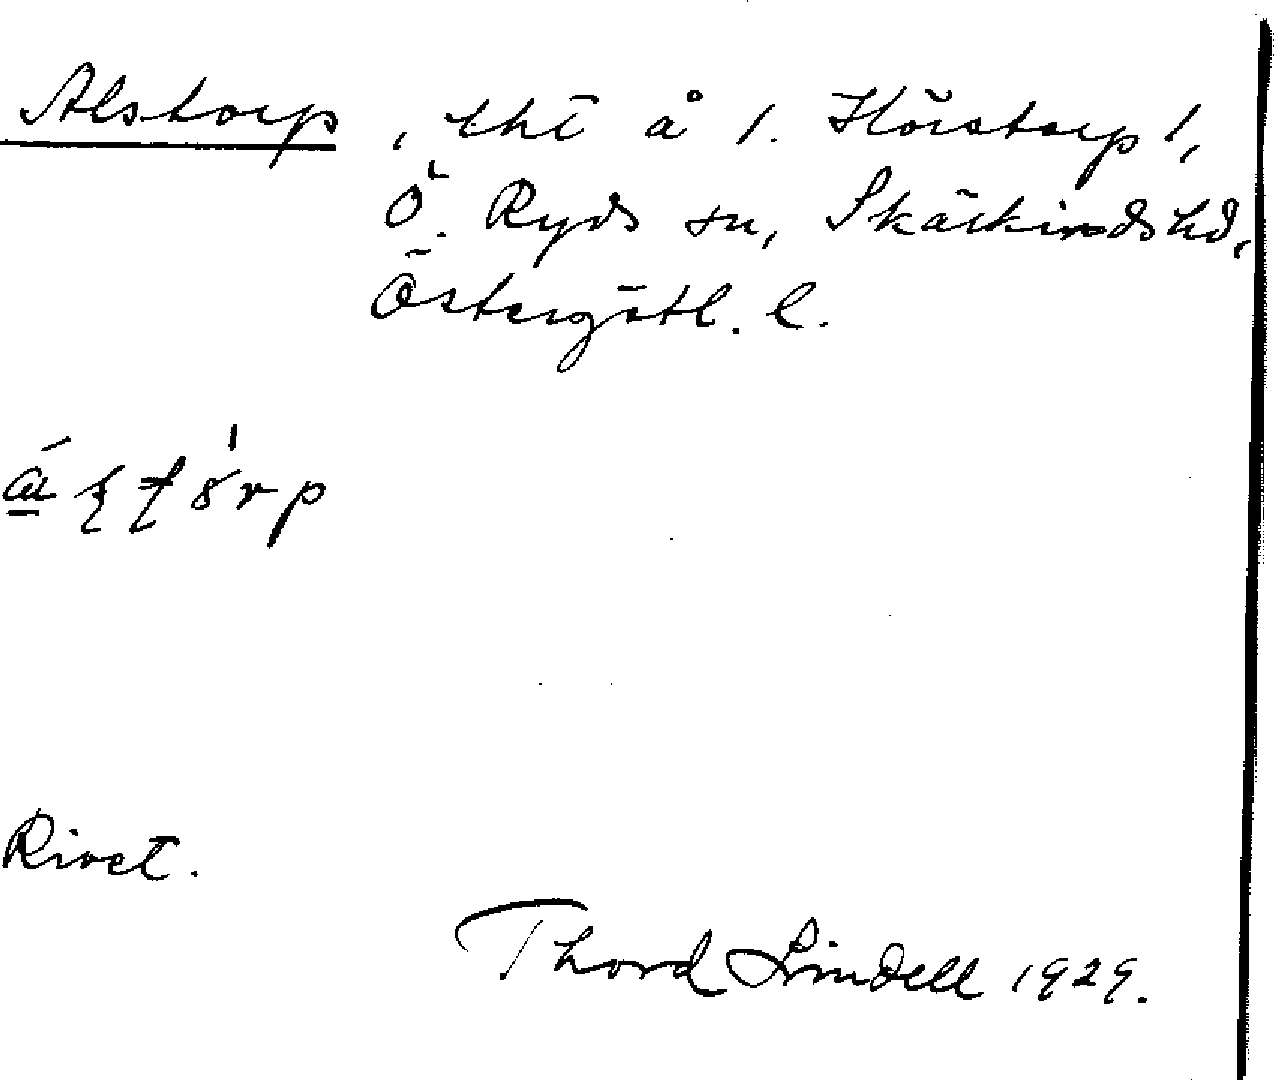 Alstorp, tht å 1. Hörstorp 1,
Ö. Ryds sn, Skärkindshd,
Östergötl. l.
Rivet.
Thord Lindell 1929.